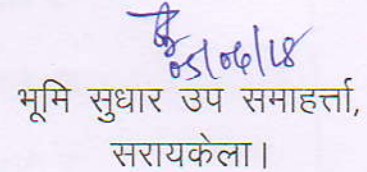 05/06/18
भूमि सुधार उप समाहर्त्ता,
सरायकेला।